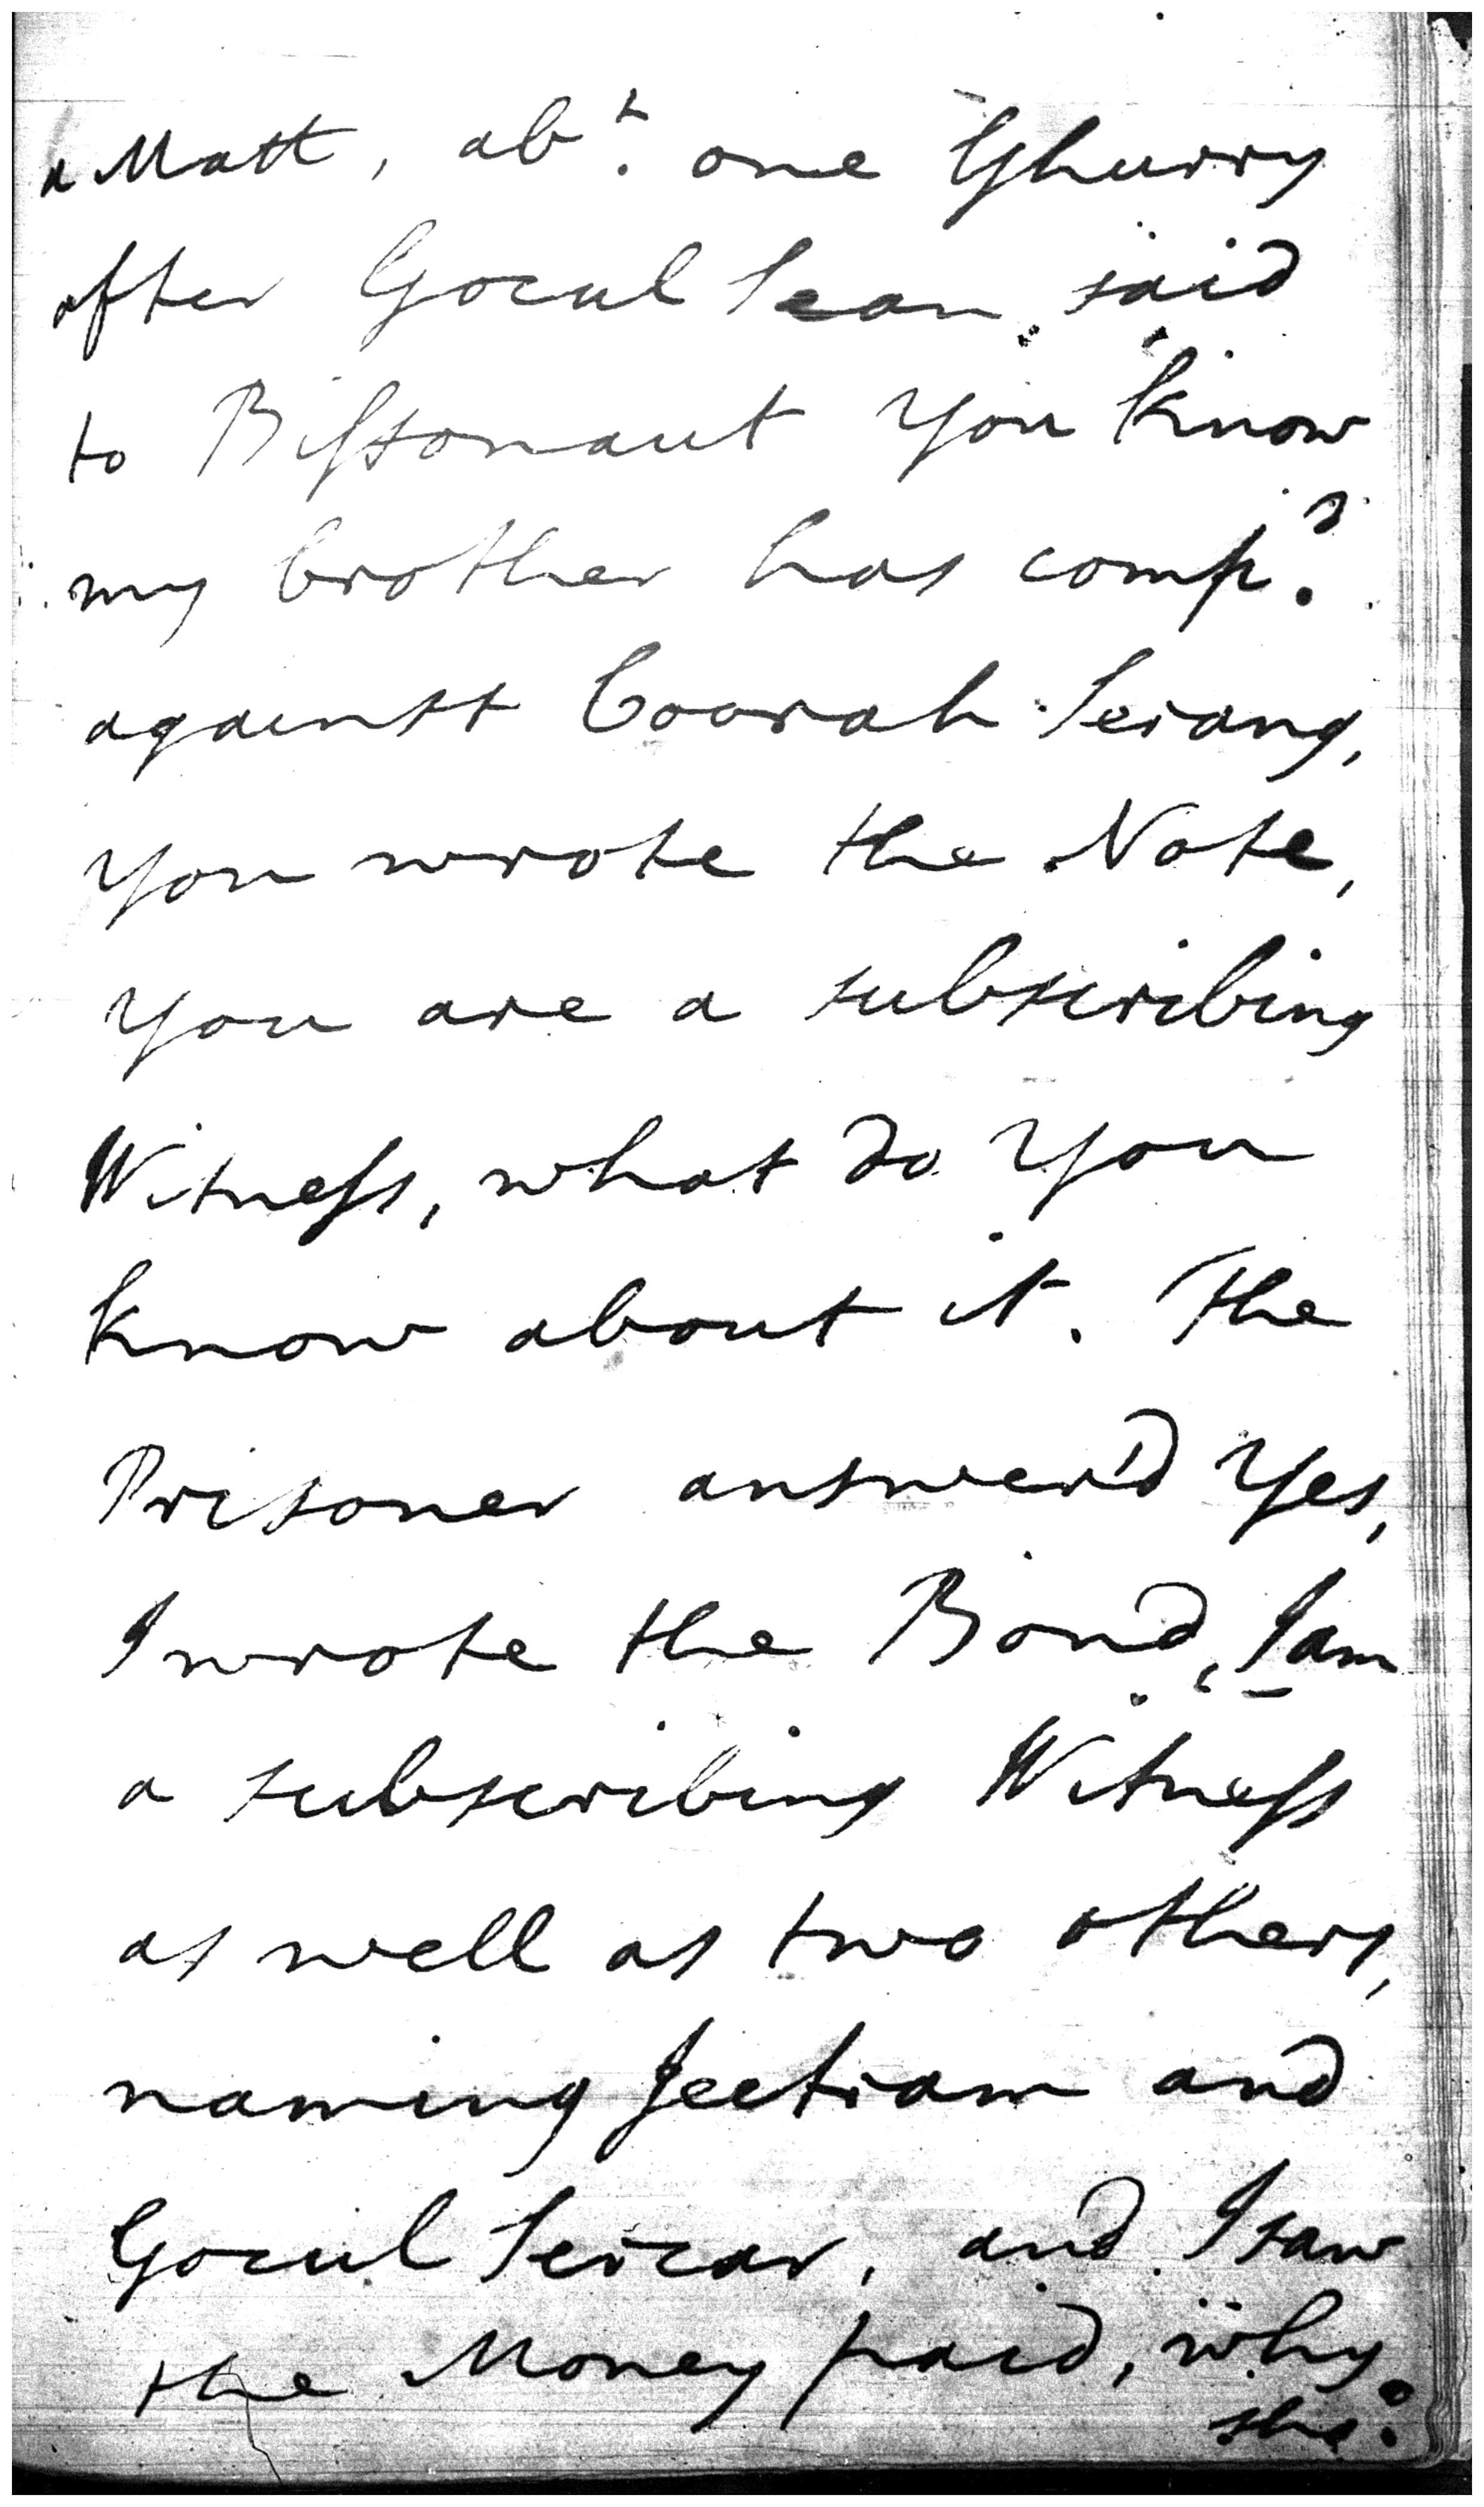 a Matt, abt. one Ghurry
after Gocul Sean said
to Bissonaut you know
my brother has compd.
against Coorah Serang,
you wrote the Note,
you are a subscribing
Witness, what do you
know about it. The
Prisoner answer'd Yes,
I wrote the Bond, I am
a subscribing Witness
as well as two others,
naming Jeetram and
Gocul Sercar, and I saw
the Money paid, why
shd.